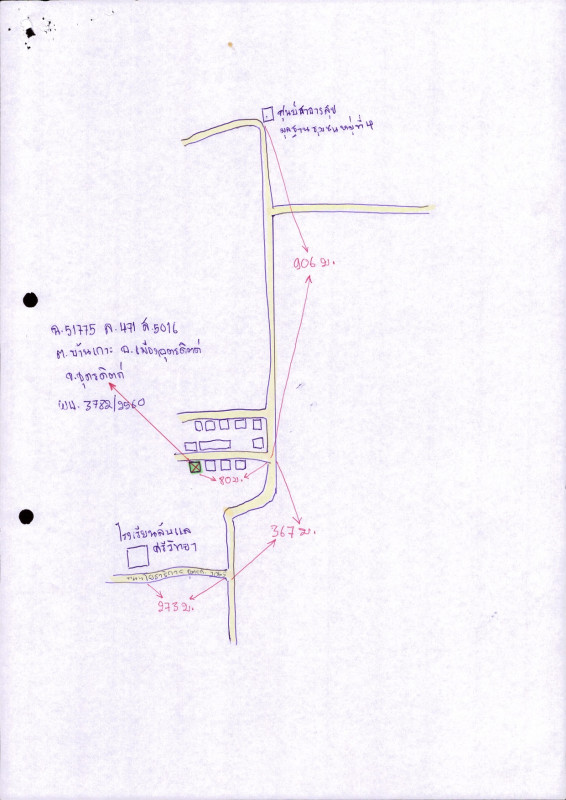 ศูนย์สาธารสุข
มูลฐานชุมชนหมู่ที่ 4
906 ม.
ฉ.51775 ล.471 ส.5016
ต.บ้านเกาะ อ.เมืองอุตรดิตถ์
จ.อุตรดิตถ์
ผบ. 3782/2560
80 ม.
367 ม.
โรงเรียนลับแล
ศรีวิทยา
273 ม.